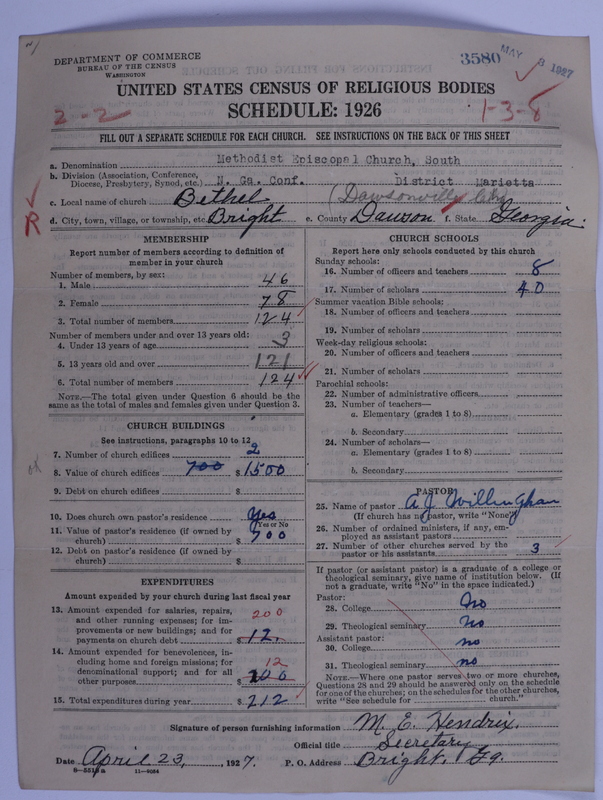 DEPARTMENT OF COMMERCE
BUREAU OF THE CENSUS
WASHINGTON
3580 MAY 3 1927
UNITED STATES CENSUS OF RELIGIOUS BODIES
SCHEDULE: 1926
2-2
1-3-8
FILL OUT A SEPARATE SCHEDULE FOR EACH CHURCH. SEE INSTRUCTIONS ON THE BACK OF THIS SHEET
a. Denomination Methodist Episcopal Church, South
b. Division (Association, Conference, Diocese, Presbytery, Synod, etc.) N. Ga. Conf. District Marietta
c. Local name of church Bethel (Dawsonville
R
d. City, town, village, or township, etc. Bright e. County Dawson f. State Georgia.
MEMBERSHIP
Report number of members according to definition of
member in your church
Number of members, by sex:
1. Male 46
2. Female 78
3. Total number of members 124
Number of members under and over 13 years old:
4. Under 13 years of age 3
5. 13 years old and over 121
6. Total number of members 124
NOTE.—The total given under Question 6 should be the
same as the total of males and females given under Question 3.
CHURCH BUILDINGS
See instructions, paragraphs 10 to 12
7. Number of church edifices 2
8. Value of church edifices 700 $1500
9. Debt on church edifices $
10. Does church own pastor's residence Yes
(Yes or No)
11. Value of pastor's residence (if owned by
church) $ 700
12. Debt on pastor's residence (if owned by
church) $
EXPENDITURES
Amount expended by your church during last fiscal year
13. Amount expended for salaries, repairs, 200
and other running expenses; for im-
provements or new buildings; and for
payments on church debt $ 12.
14. Amount expended for benevolences, in-
cluding home and foreign missions; for 12
denominational support; and for all
other purposes $ 200
15. Total expenditures during year $ 212
CHURCH SCHOOLS
Report here only schools conducted by this church
Sunday schools:
16. Number of officers and teachers 8
17. Number of scholars 40
Summer vacation Bible schools:
18. Number of officers and teachers
19. Number of scholars
Week-day religious schools:
20. Number of officers and teachers
21. Number of scholars
Parochial schools:
22. Number of administrative officers
23. Number of teachers—
a. Elementary (grades 1 to 8)
b. Secondary
24. Number of scholars—
a. Elementary (grades 1 to 8)
b. Secondary
PASTOR
25. Name of pastor A. J. Willingham
(If church has no pastor, write "None")
26. Number of ordained ministers, if any, em-
ployed as assistant pastors
27. Number of other churches served by the
pastor or his assistants 3
If pastor (or assistant pastor) is a graduate of a college or
theological seminary, give name of institution below. (If
not a graduate, write "No" in the space indicated.)
Pastor:
28. College No
29. Theological seminary No
Assistant pastor:
30. College no
31. Theological seminary no
NOTE.—Where one pastor serves two or more churches,
Questions 28 and 29 should be answered only on the schedule
for one of the churches; on the schedules for the other churches,
write "See schedule for church."
Signature of person furnishing information M. E. Hendrix.
Official title Secretary
Date April 23, 1927. P. O. Address Bright, Ga.
11—9084